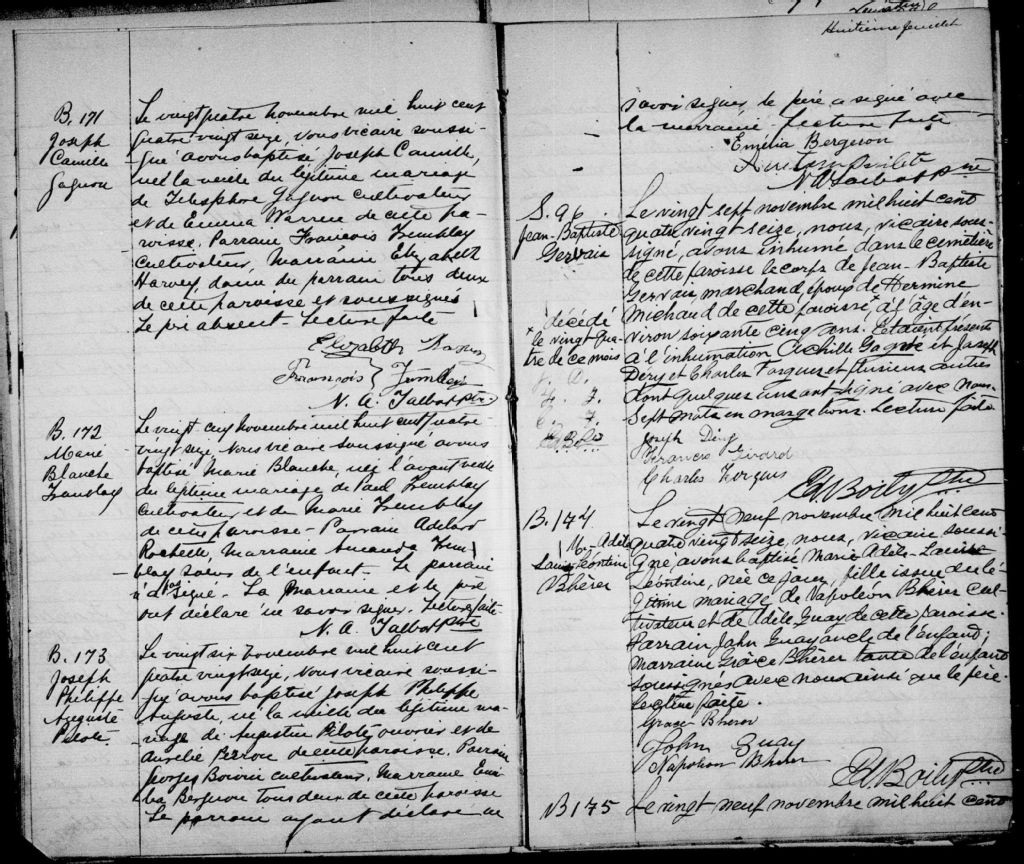 Huitième feuillet
B. 171
Joseph
Camille
Gagnon
Le vingt quatre novembre mil huit cent
quatre vingt seize, nous vicaire soussi-
gné avons baptisé Joseph Camille,
né la veille du légitime mariage
de Télesphore Gagnon cultivateur
et de Emma Warren de cette pa-
roisse. Parrain François Tremblay
cultivateur, Marraine Elizabeth
Harvey, dame du parrain tous deux
de cette paroisse et soussignés
Le père absent. Lecture faite
Elizabeth
François Tremblay
N. A. Talbot ptre
B. 172
Marie
Blanche
Tremblay
Le vingt cinq novembre mil huit cent quatre-
vingt seize, Nous vicaire soussigné avons
baptisé Marie Blanche, née l'avant veille
du légitime mariage de Paul Tremblay
cultivateur et de Marie Tremblay
de cette paroisse - Parrain Adelard
Rochette, Marraine Amanda Trem-
blay soeur de l'enfant. Le parrain
a signé. La Marraine et le père
ont déclaré ne savoir signer. Lecture faite
N. A. Talbot ptre
B. 173
Joseph
Philippe
Auguste
Pilote
Le vingt six novembre mil huit cent
quatre vingt seize, Nous vicaire soussi-
gné avons baptisé Joseph Philippe
Auguste, né la veille du légitime ma-
riage de Augustin Pilote, ouvrier et de
Aurélie Perron de cette paroisse. Parrain
Georges Boivin cultivateur, Marraine Emé-
lia Bergeron tous deux de cette paroisse
Le parrain ayant déclaré ne
savoir signer, le père a signé avec
la marraine Lecture faite
Emélia Bergeron
Augustin Pilote
N A Talbot Ptre
S. 96
Jean-Baptiste
Gervais
Le vingt sept novembre mil huit cent
quatre vingt seize, nous, vicaire sous-
signé, avons inhumé dans le cimetière
de cette paroisse le corps de Jean-Baptiste
Gervais, marchand, époux de Hermine
Michaud de cette paroisse + à l'âge d'en-
viron soixante cinq ans. Etaient présents
à l'inhumation Achille Gagné et Joseph
Déry et Charles Forgues et plusieurs autres
dont quelques uns ont signé avec nous.
Sept mots en marge bons. Lecture faite
+ décédé
le vingt qua-
tre de ce mois
J. D.
F. G.
C. F.
Joseph Déry
Francois Girard
Charles Forgues
Ed. Boily Ptre
B. 174
M. Adèle
Louise Léontine
Bhérer
Le vingt neuf novembre mil huit cent
quatre vingt seize, nous, vicaire soussi-
gné avons baptisé Marie Adèle-Louise
Léontine, née ce jour, fille issue du lé-
gitime mariage de Napoléon Bhérer cul-
tivateur et de Adèle Guay de cette paroisse.
Parrain John Guay oncle de l'enfant;
Marraine Grâce Bhérer tante de l'enfant
soussignés avec nous ainsi que le père.
Lecture faite.
Grace Bherer
John Guay
Napoléon Bhérer
Ed. Boily Ptre
B 175
Le vingt neuf novembre mil huit cent